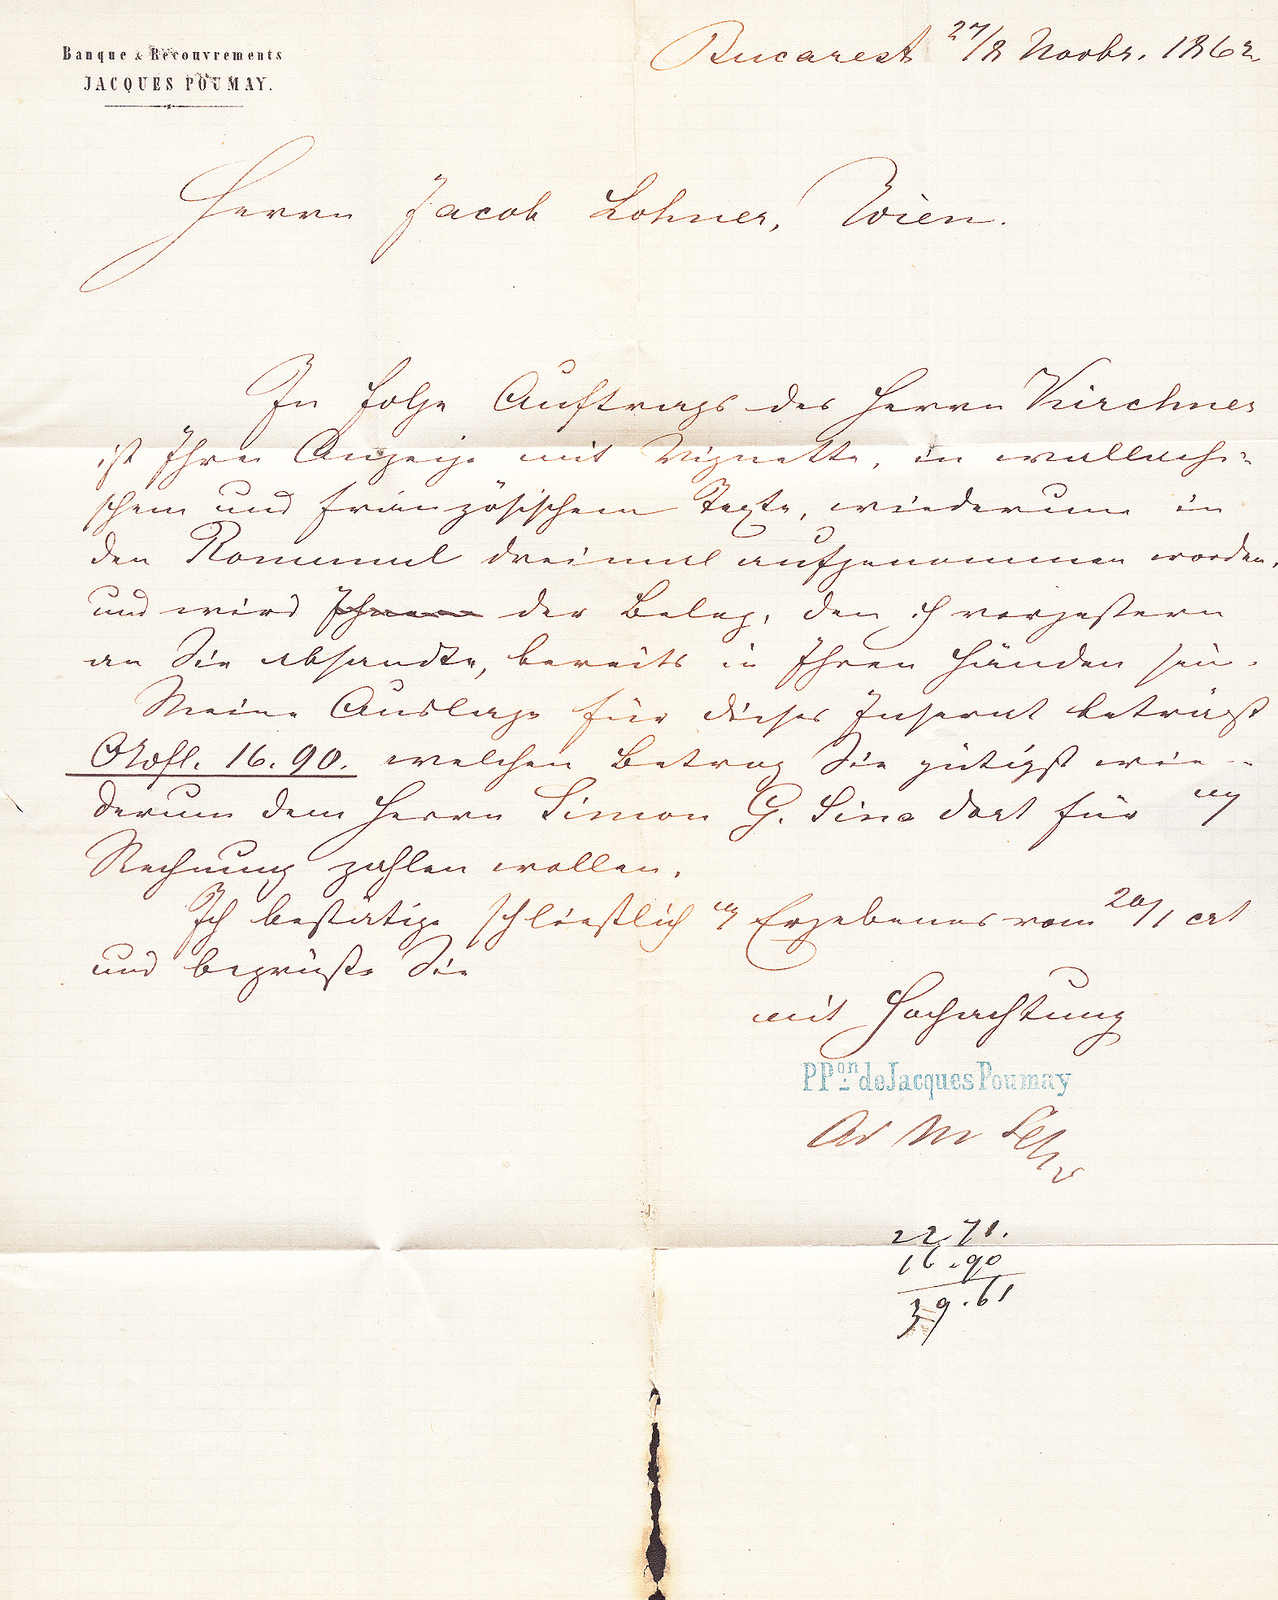 Banque & Recouvrements
JACQUES POUMAY.
Bucarest 27/8 Novbr. 1862
Herrn Jacob Lohner, Wien.
In Folge Auftrags des Herrn Kirchner
ist Ihre Anzeige mit Vignette, in wallachi-
schem und französischem Texte, wiederum in
den Romanul dreimal aufgenommen worden,
und wird Ihnen der Beleg, den ich vorgestern
an Sie absandte, bereits in Ihren Händen sein.
Meine Auslage für dieses Inserat beträgt
16.90. welchen Betrag Sie gütigst wie-
derum dem Herrn Simon G. Sina dort für
Rechnung zahlen wollen.
Ich bestätige schließlich Ergebenes vom 20/1 crt
und begrüße Sie
mit Hochachtung
PPon de Jacques Poumay
22.71.
16.90
39.61